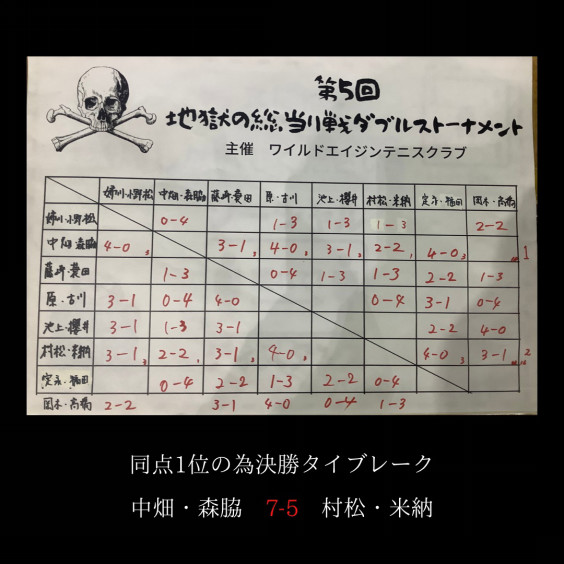 第5回
地獄の総当り戦ダブルストーナメント
主催　ワイルドエイジンテニスクラブ
姉川・小野松 中畑・森脇 藤崎・薮田 原・古川 池上・櫻井 村松・米納 定永・福田 岡本・高橋
姉川・小野松 0-4 1-3 1-3 1-3 2-2
中畑・森脇 4-0 3 3-1 3 4-0 3 3-1 3 2-2 1 4-0 3 1
藤崎・薮田 1-3 0-4 1-3 1-3 2-2 1-3
原・古川 3-1 0-4 4-0 0-4 3-1 0-4
池上・櫻井 3-1 1-3 3-1 2-2 4-0
村松・米納 3-1 3 2-2 1 3-1 3 4-0 3 4-0 3 3-1 2
定永・福田 0-4 2-2 1-3 2-2 0-4
岡本・高橋 2-2 3-1 4-0 0-4 1-3
同点1位の為決勝タイブレーク
中畑・森脇　7-5　村松・米納